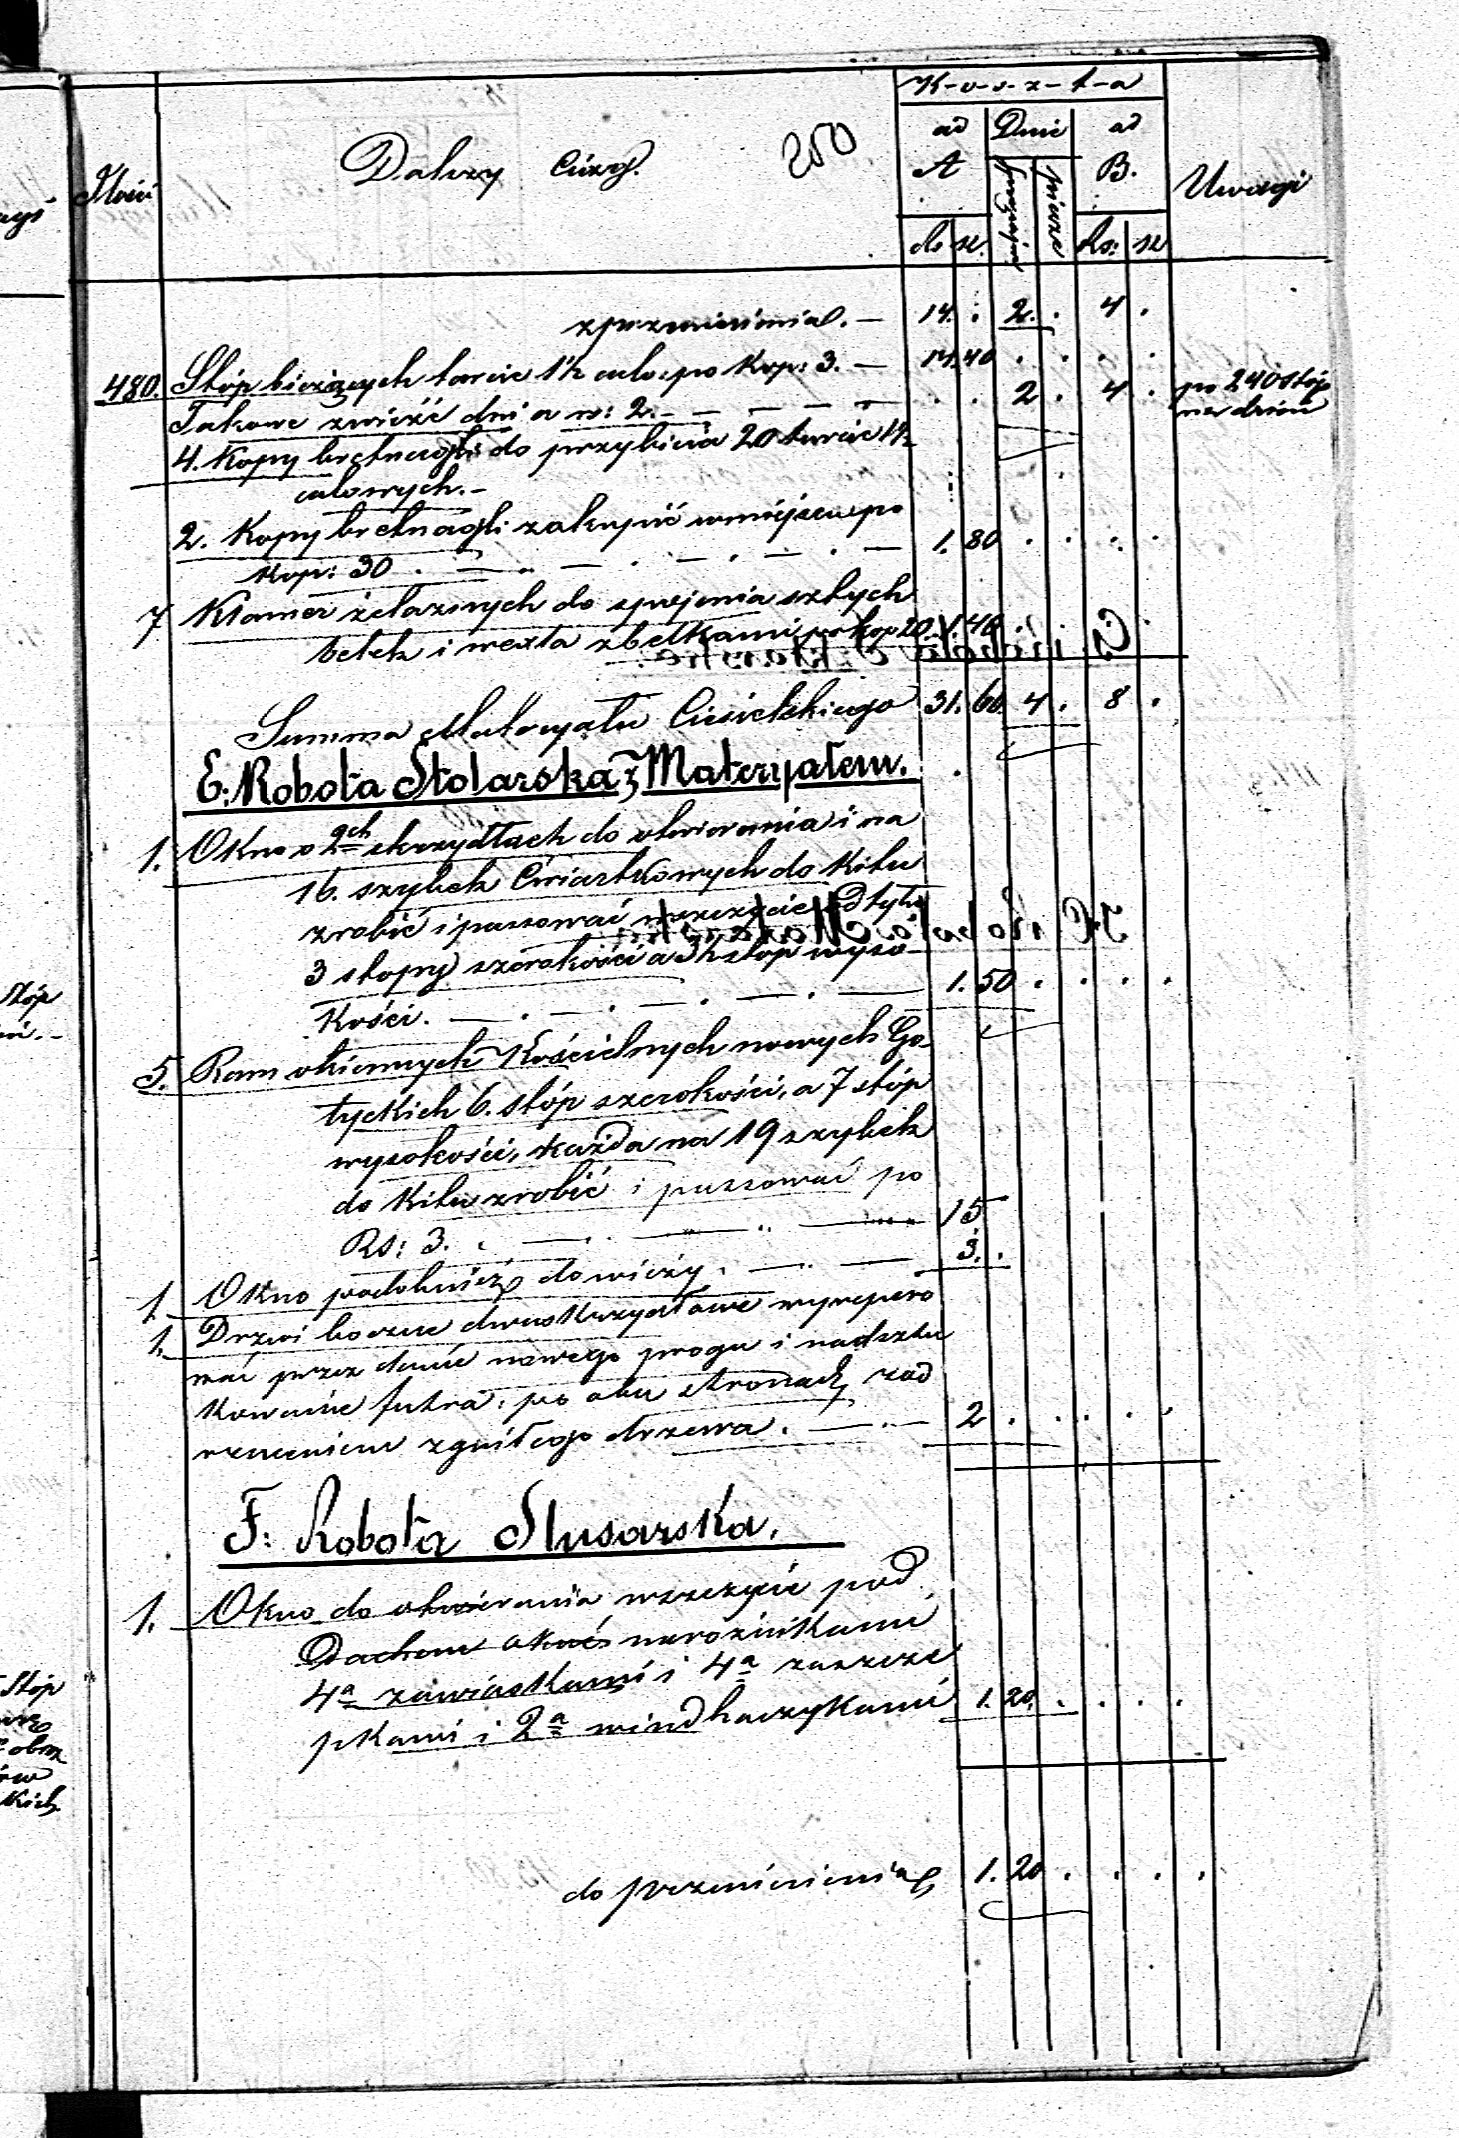 K-o-s-z-t-a
Ilość Dalszy Ciąg. 250 ad A Dnie ad B. Uwagi
Rs: piesze
z przeniesienia. — 14. . 2. . 4 .
480. Stóp bieżących tarcic 1½ calo: po Kop: 3. — 14.40 . . . .
Takowe zwieźć dni a w: 2. — — — — . . 2 . 4 . po 240 stóp
na dzień
4. Kopy bretnagli do przybicia 20 tarcic 1½
calowych. —
2. Kopy bretnagli zakupić w miejscu po
Kop: 30 . — — . — . — 1. 80 . . . .
7 Klamer żelaznych do spojenia
belek i z belkami po kop 20 1.40
Summa Materyału Ciesielskiego 31. 60. 4 . 8 .
E. Robota Stolarska z Materyałem.
1. Okno o 2ch skrzydłach do otwierania i na
16. szybek Ćwiartkowych do Kitu
zrobić i passować w szczycie
3 stopy szerokości a 3½ stop wyso-
Kości. — . — . — . — 1. 50 . . . .
5. Ram okiennych Kościelnych nowych Go-
tyckich 6. stóp szerokości, a 7 stóp
wysokości, każda na 19 szybek
do Kitu zrobić i passować po
Rs: 3. . — . — — 15
1. Okno podobnież do wieży . — . — 3. .
1. Drzwi boczne dwuskrzydłowe wyrepero
wać przez danie nowego progu i nadsztu
kowanie futra po obu stronach zod
rzuceniem zgniłego drzewa . — — 2 . . . . .
F: Robota Slusarska.
1. Okno do otwierania w szczycie pod
Dachem okuć narożnikami
4a zawiaskami i 4a zaszcze
pkami i 2a windhaczykami 1. 20. . . . .
do przeniesienia 1. 20 . . . .